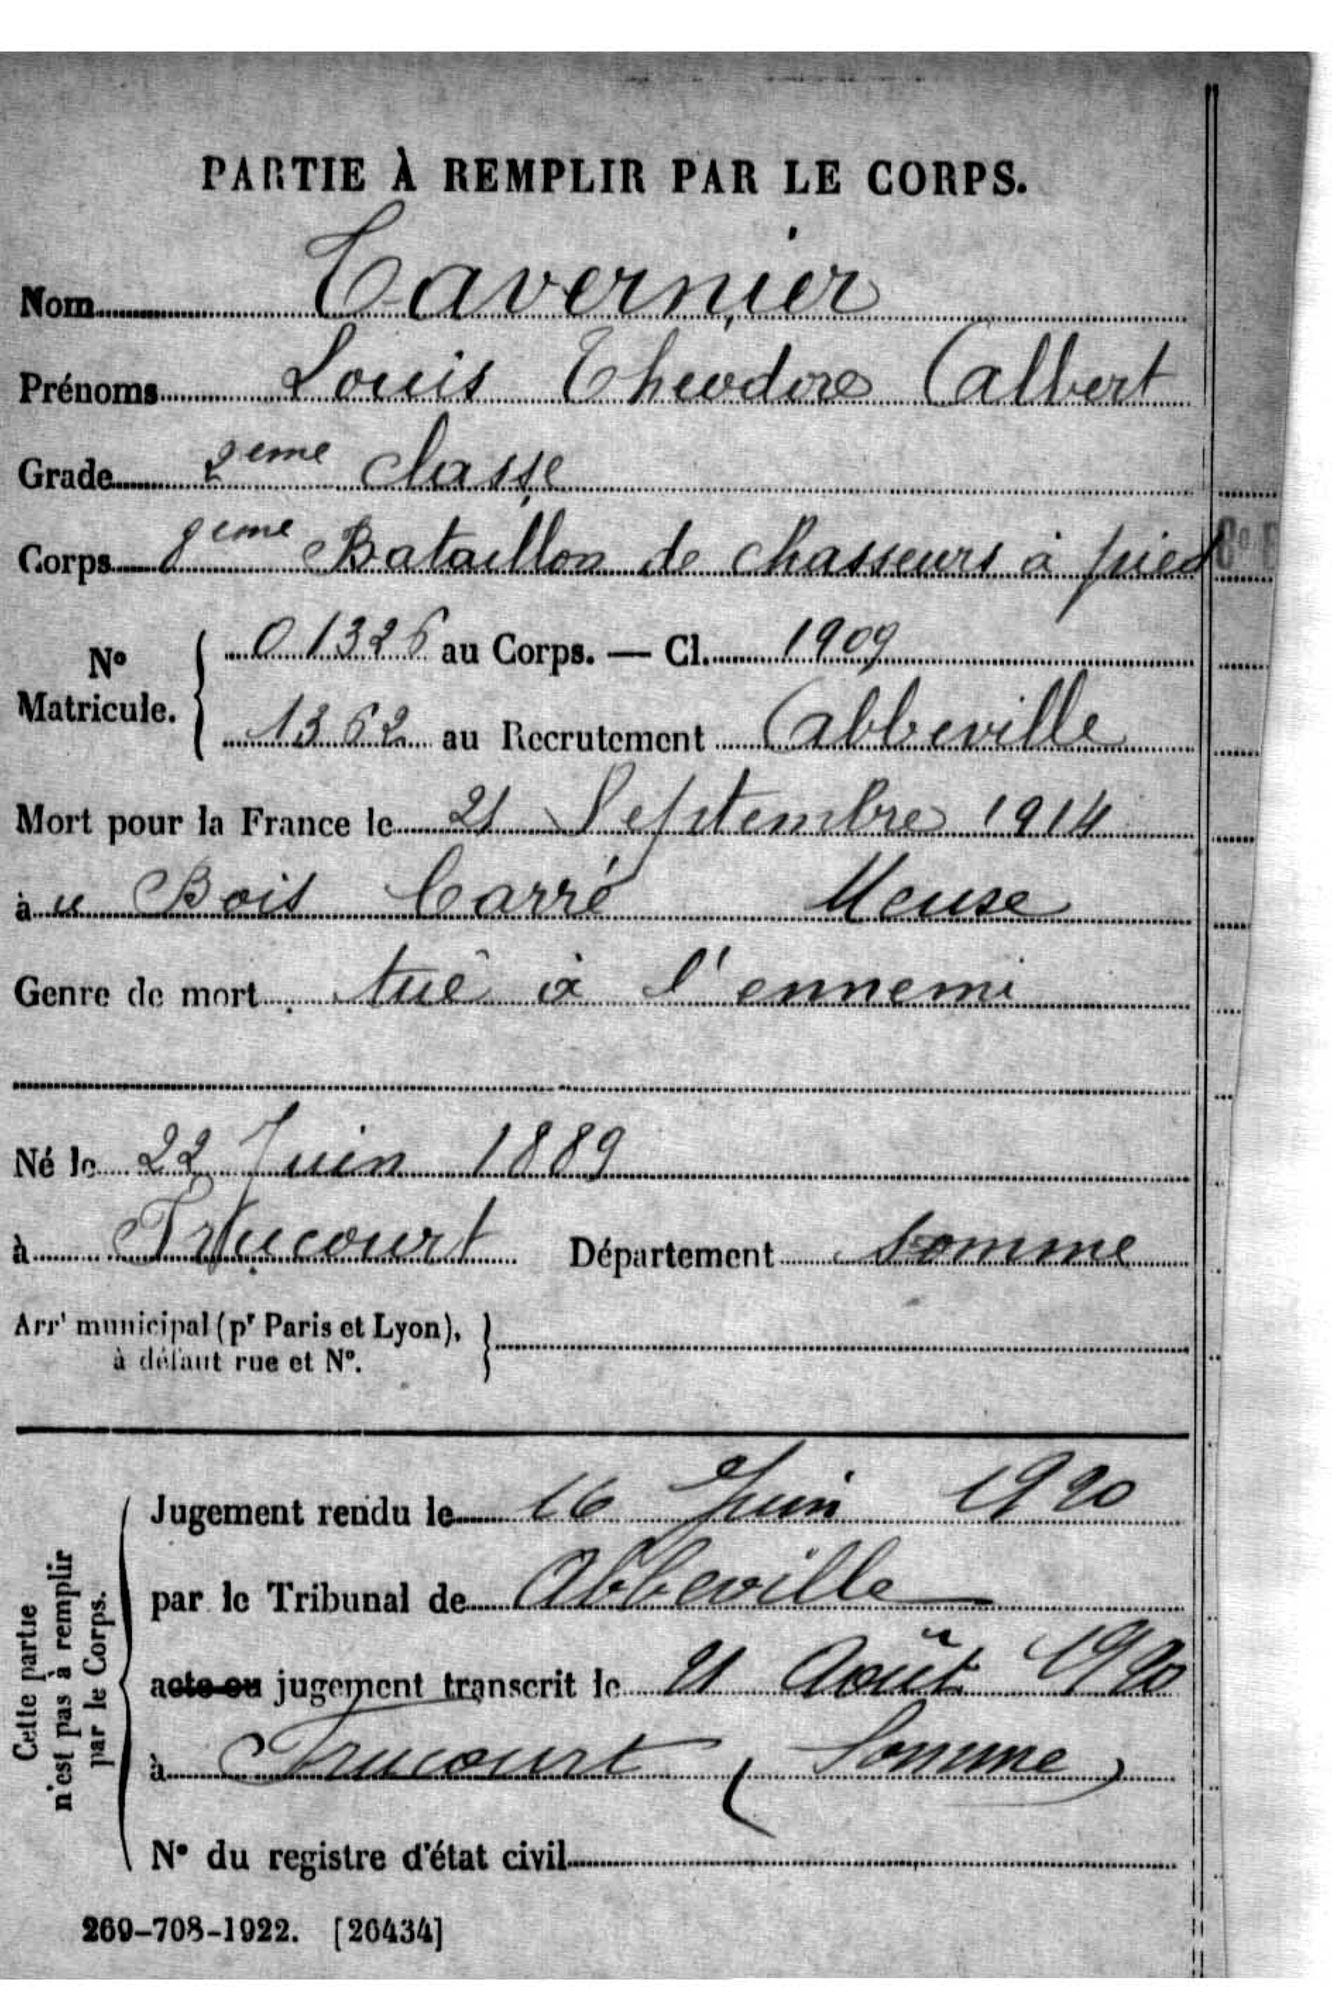 PARTIE À REMPLIR PAR LE CORPS.
Nom Tavernier
Prénoms Louis Théodore Albert
Grade 2eme classe
Corps 8eme Bataillon de Chasseurs à pied
N° Matricule. { 01326 au Corps. — Cl. 1909
1362 au Recrutement Abbeville
Mort pour la France le 21 Septembre 1914
à u Bois Carré Meuse
Genre de mort tué à l'ennemi
Né le 22 Juin 1889
à Trucourt Département Somme
Arrt municipal (pr Paris et Lyon), }
à défaut rue et N°.
Cette partie
n'est pas à remplir
par le Corps.
Jugement rendu le 16 Juin 1920
par le Tribunal de Abbeville
acte ou jugement transcrit le 21 Août 1920
à Frucourt (Somme)
N° du registre d'état civil
269-708-1922. [26434]